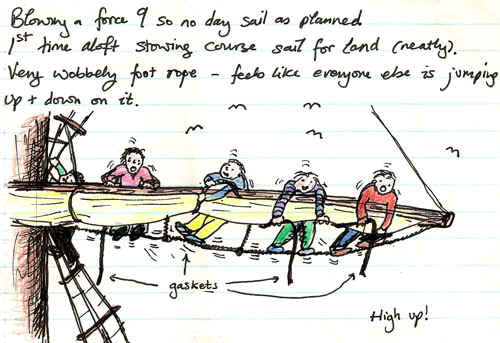 Blowing a force 9 so no day sail as planned
1st time aloft stowing course sail for land (neatly).
Very wobbely foot rope - feels like everyone else is jumping
up + down on it.
gaskets
High up!